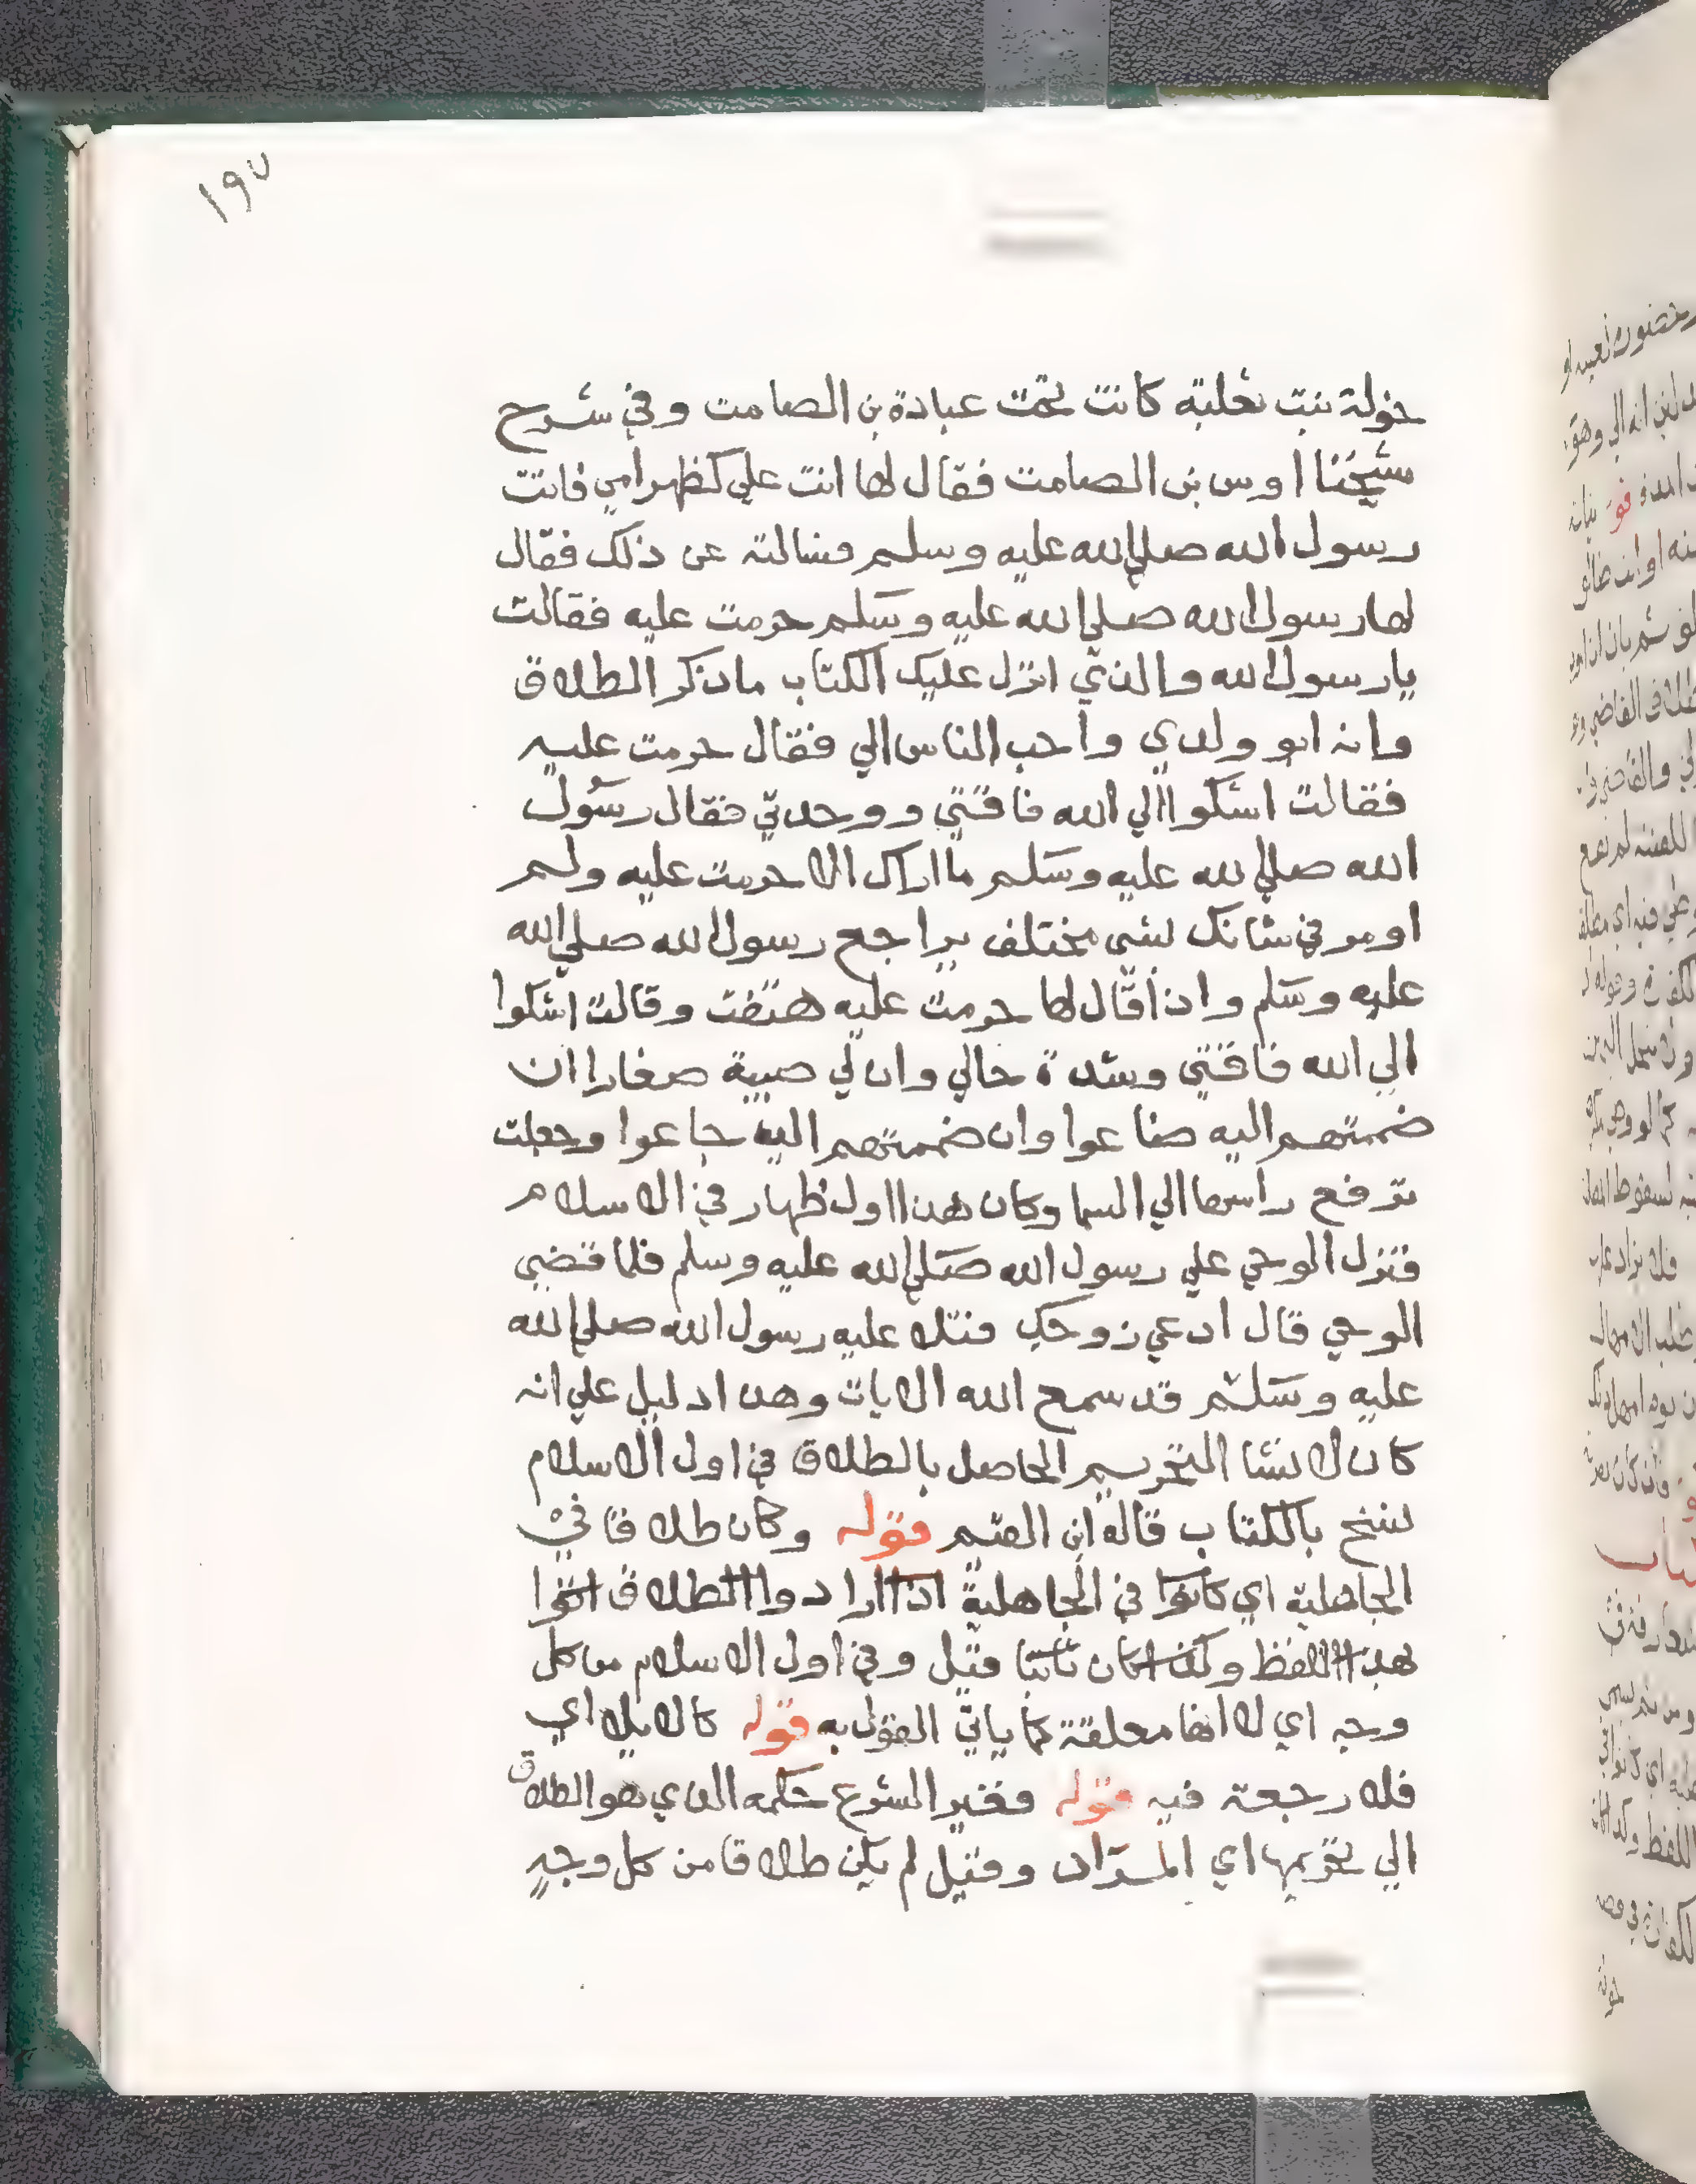 ١٩٧
خولة بنت ثعلبة كانت تحت عبادة بن الصامت وفي شرح
شيخنا اوس بن الصامت فقال لها انت علي كظهر امي فاتت
رسول الله صلي الله عليه وسلم فسالته عن ذلك فقال
لها رسول الله صلي الله عليه وسلم حرمت عليه فقالت
يارسول الله والذي انزل عليك الكتاب ماذكر الطلاق
وانه ابو ولدي واحب الناس الي فقال حرمت عليه
فقالت اشكوا الي الله فاقتي ووحدتي فقال رسول
الله صلي الله عليه وسلم ما اراك الا حرمت عليه ولم
اومر في شانك بشي مختلف براجع رسول الله صلي الله
عليه وسلم واذا قال لها حرمت عليه هتفت وقالت اشكوا
الي الله فاقتي وشدة حالي وان لي صبية صغارا ان
ضممتهم اليه ضاعوا وان ضممتهم اليه جاعوا وجعلت
ترفع راسها الي السما وكان هذا اول ظهار في الاسلام
فنزل الوحي علي رسول الله صلي الله عليه وسلم فلما قضي
الوحي قال ادعي زوجك فتلا عليه رسول الله صلي الله
عليه وسلم قد سمع الله الايات وهذا دليل علي انه
كان لانشا التحريم الحاصل بالطلاق في اول الاسلام
نسخ بالكتاب قاله ابن القيم قوله وكان طلاقا في
الجاهلية اي كانوا في الجاهلية اذا ارادوا الطلاق اتوا
بهذا اللفظ وكذا كان ثابتا قبل وفي اول الاسلام من كل
وجه اي لا انها معلقة كما ياتي القول به قوله كالايلا اي
فلا رجعة فيه قوله فغير الشرع حكمه الذي هو الطلاق
الي تحريمها اي المراة وقيل لم يكن طلاقا من كل وجه